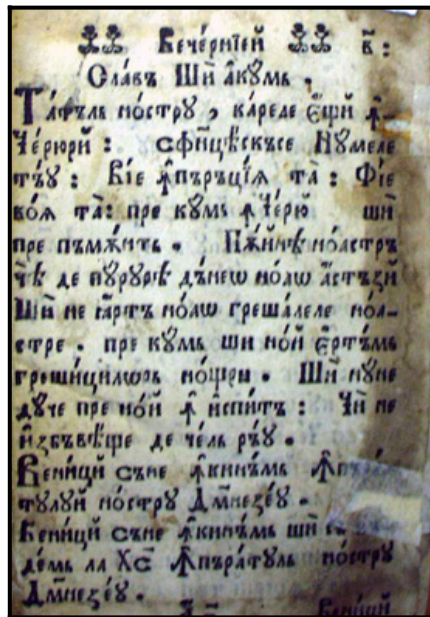 Вечернїей в҃:
Славъ Шѝ а҆кꙋмь .
Таⷮтъль нострꙋ , кареле є҆щй ꙟ҆-
Чѐрюрй : сфинцѣскъсе Нꙋмеле
тъꙋ : Вїе ꙟ҆пъръцїѧ та̀ : Фїе
воѧ та̀ : пре кꙋмь ꙟ҆ Чѐрю шѝ
пре пъмѫ́нть . Пѫ́йнѣ ноастръ
чѣ де пꙋрꙋрѣ дъ́неѡ ноаѡ а҆стъзй
Шѝ не ꙗ҆ртъ ноаѡ грешалеле ноа-
стре . пре кꙋмь ши ной є҆ртъмь
грешицилѡрь нощри . Шѝ нꙋне
дꙋче пре ной ꙟ҆ и҆спитъ : Чѝ не
и҆збъвѣще де чель ръꙋ .
Веницй съне ꙟ҆кинъмь
тꙋлꙋй нострꙋ Дмⷩ҇незеꙋ .
Веницй съне ꙟ҆кинъмь шѝ
демь ла Хс҃ ꙟ҆пъратꙋль нострꙋ
Дмⷩ҇незеꙋ .
Веницй